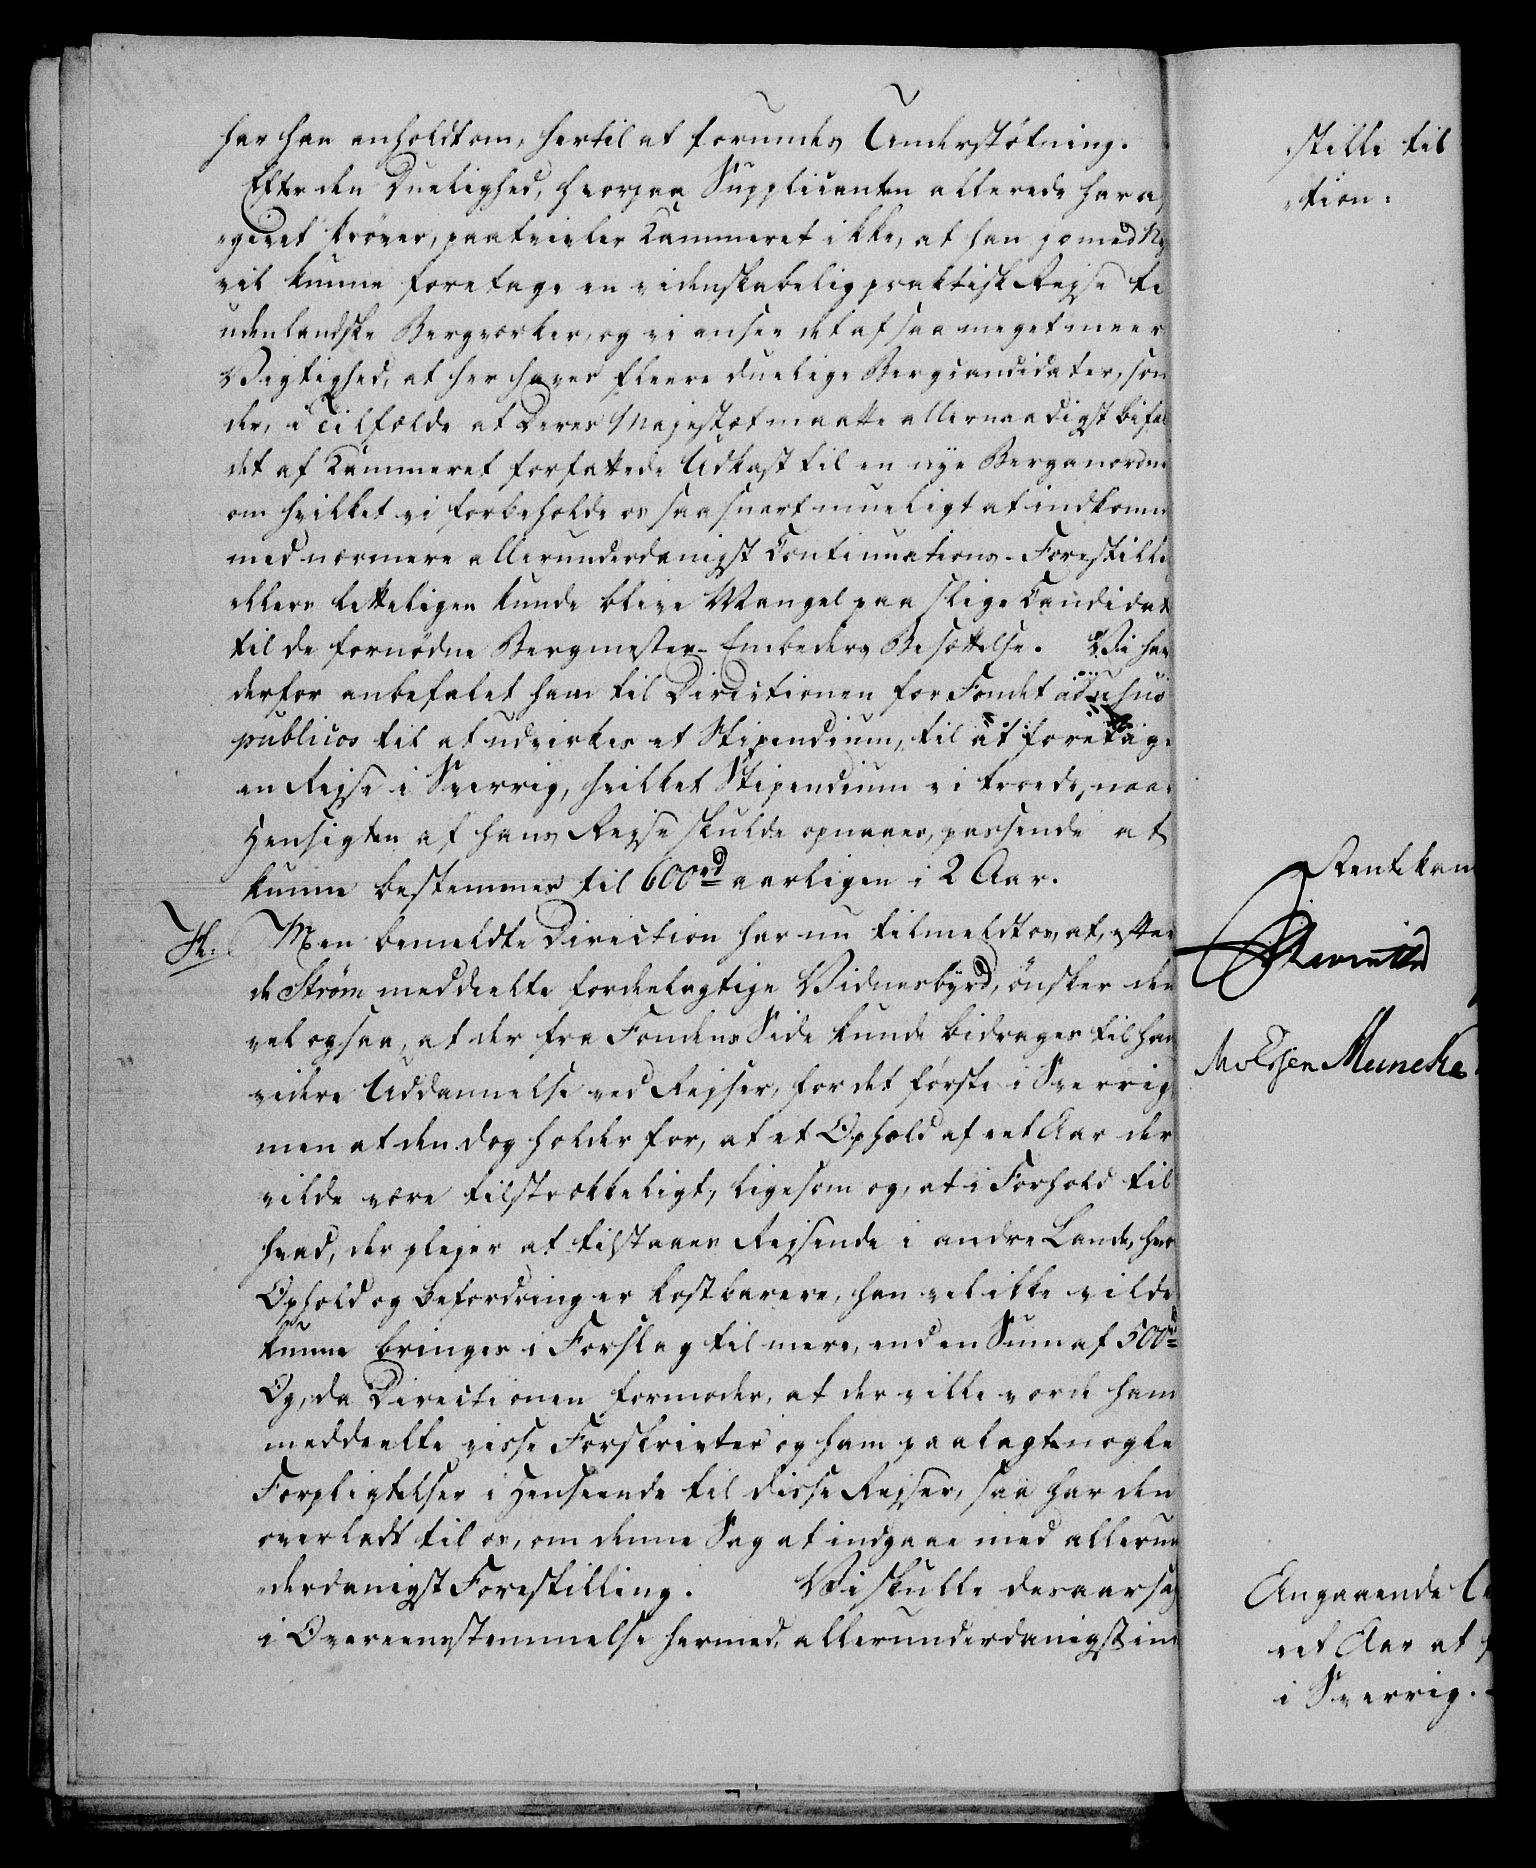 har han anholdt om, hertil at forundes Understøtning.
Efter den Duelighed, hvorpaa Supplicanten allerede har a
givet Prøver, paatvivler Kammeret ikke, at han jo med Ny
vil kunne foretage en videnskabelig praktisk Rejse til
udenlandske Bergværker, og vi ansee det af saa meget meer
Vigtighed, at her haves fleere duelige Bergcandidater, som
der, i Tilfælde at Deres Majestæt maatte allernaadigst bifal
det af Kammeret forfattede Udkast til en nye Berganordn
om hvilket vi forbeholde os saa snart mueligt at indkomm
med nærmere allerunderdanigst Continuations-Forestille
ellers letteligen kunde blive Mangel paa slige Candidat
til de fornødne Bergmester-Embeders Besættelse. Vi hav
derfor anbefalet ham til Directionen for Fondet ad usus
publicos til at udvirkes et Stipendium, til at foretage
en Rejse i Sverrig, hvilket Stipendium vi troede, naar
Hensigten af hans Rejse skulde opnaaes, passende at
kunne bestemmes til 600 rd aarligen i 2 Aar.
Men bemeldte Direction har nu tilmeldt os, at, efter
de Strøm meddeelte fordeelagtige Vidnesbyrd, ønsker den
vel ogsaa, at der fra Fondens Side kunde bidrages til han
videre Uddannelse ved Rejser, for det første i Sverrig
men at den dog holder for, at et Ophold af eet Aar der
vilde være tilstrækkeligt, ligesom og, at i Forhold til
hvad, der plejer at tilstaaes Rejsende i andre Lande, hvor
Ophold og Befordring er kostbarere, han vel ikke vilde
kunne bringes i Forslag til mere, end en Sum af 500 rd
Og, da Directionen formoder, at der ville vorde ham
meddeelte visse Forskrivter og ham paalagte nogle
Forpligtelser i Henseende til disse Rejser, saa har den
overladt til os, om denne Sag at indgaae med allerun
derdanigst Forestilling. Vi skulle desaarsag
i Overeensstemmelse hermed, allerunderdanigst ind
stille til
tion.
Rentekam
Moesgen Munche
Angaaende
eet Aar at
i Sverrig.